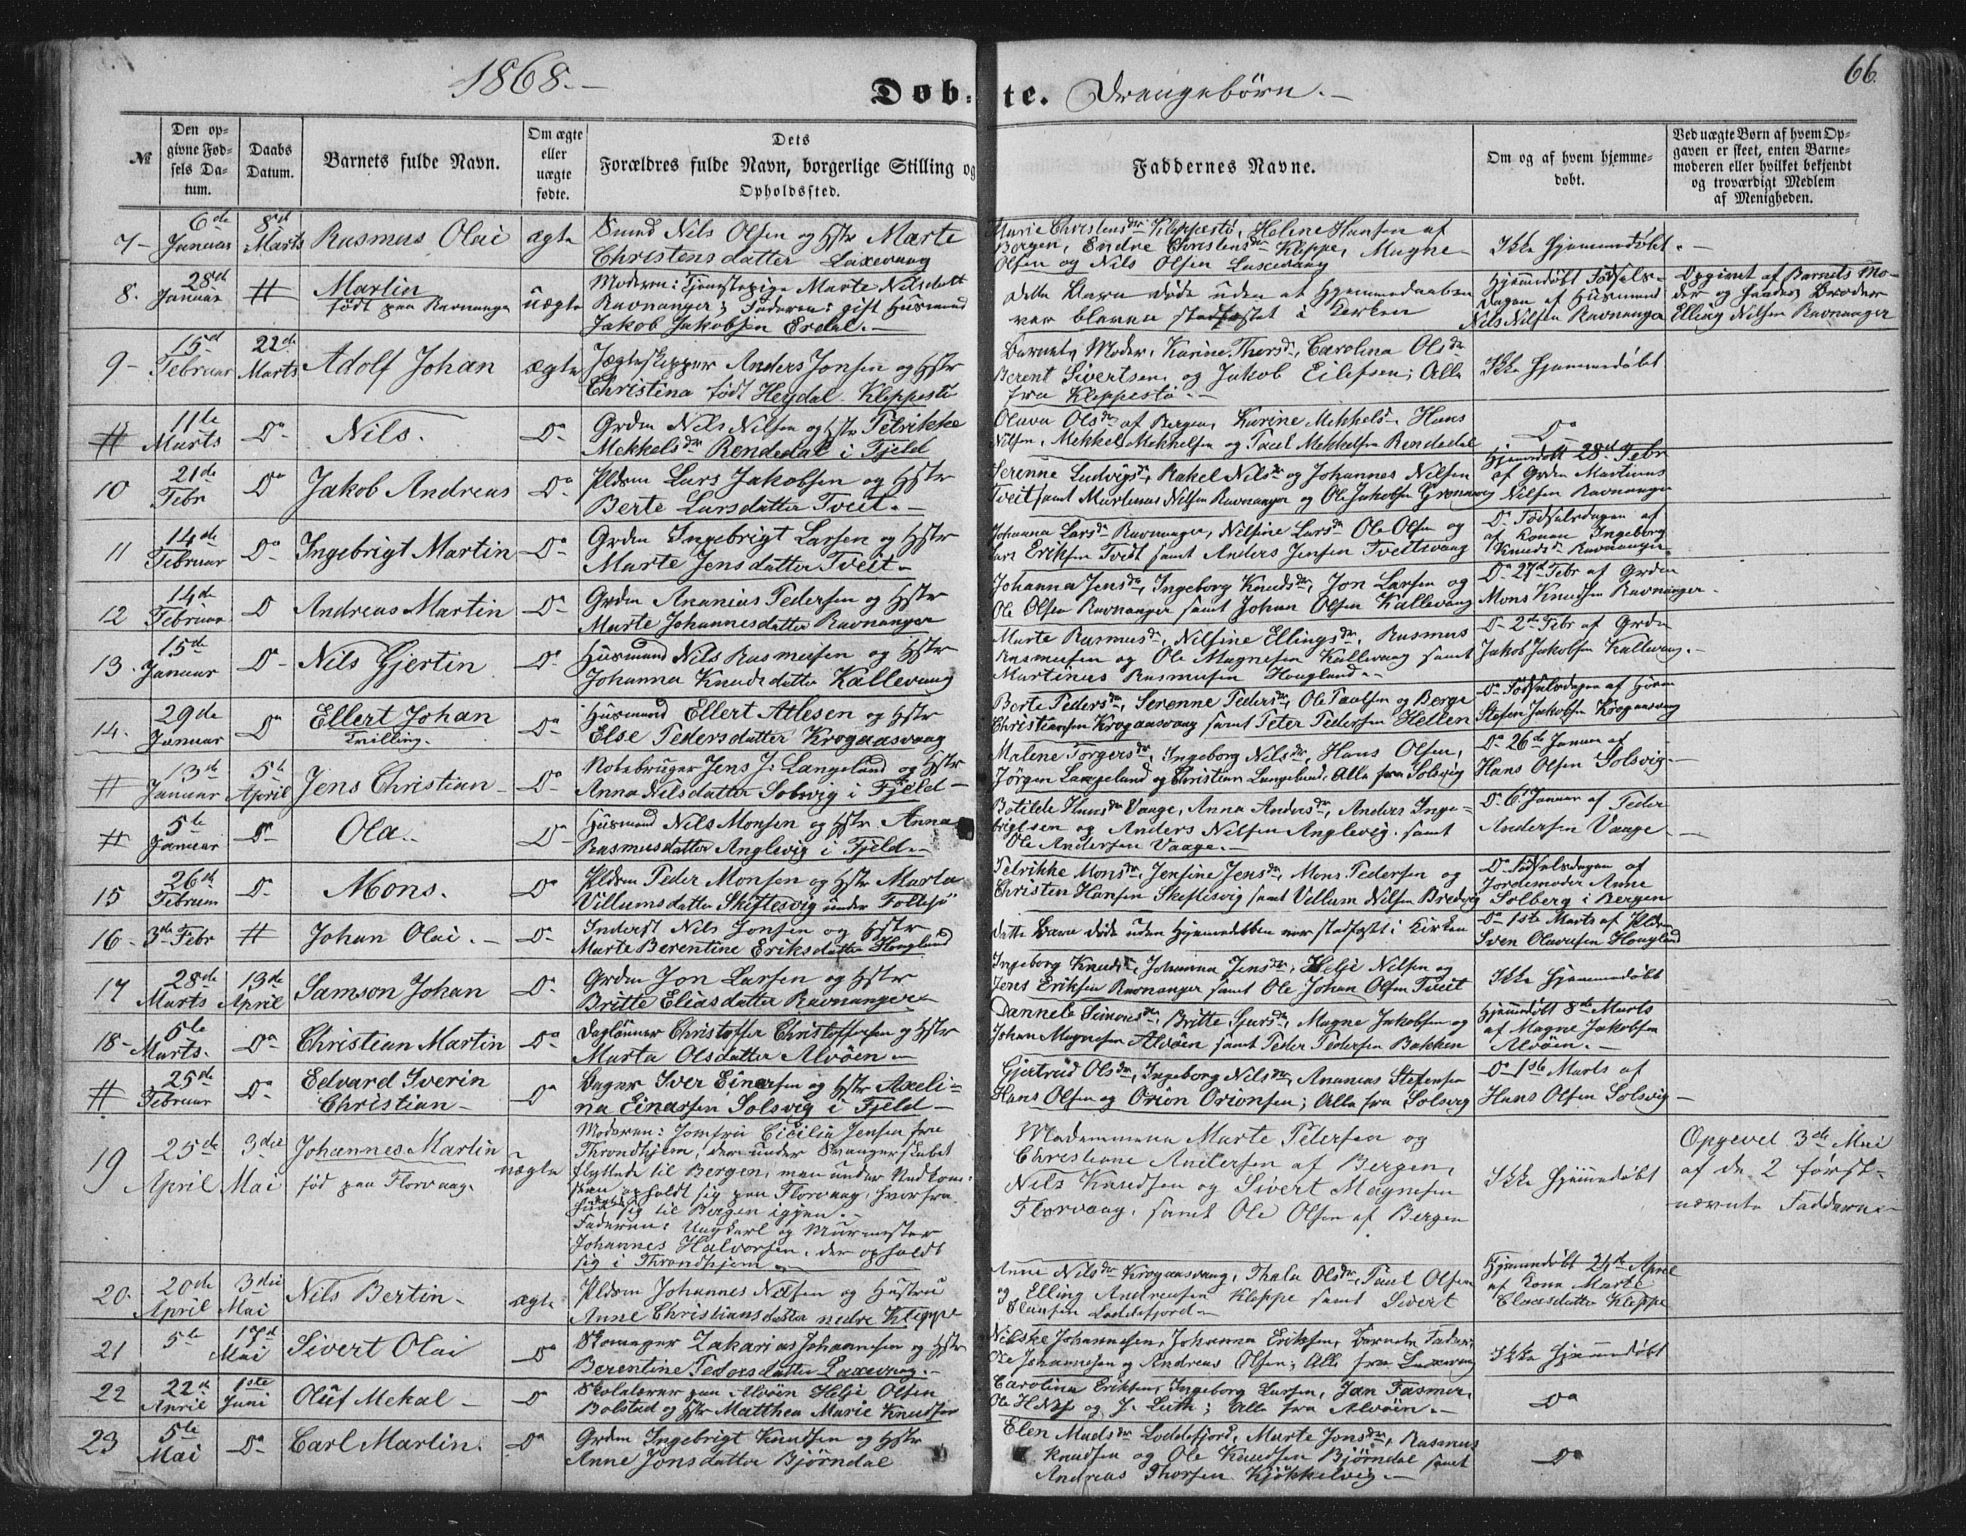 1868.-
Døb-te. Drengebørn.-
66.
№
Den op-
givne Fød-
sels Da-
tum.
Daabs
Datum.
Barnets fulde Navn.
Om ægte
eller
uægte
fødte.
Dets
Forældres fulde Navn, borgerlige Stilling og
Opholdssted.
Faddernes Navne.
Om og af hvem hjemme-
døbt.
Ved uægte Børn af hvem Op-
gaven er skeet, enten Barne-
moderen eller hvilket bekjendt
og troværdigt Medlem
af Menigheden.
7- 6de Januar 8de Marts Rasmus Olai ægte
Nils Olsen og Hstr Marte
Christensdatter Laxevaag
Marie Christensdr Kleppestø, Helene Hansen af
Bergen, Endre Christensdr Kleppe, Magne
Olsen og Nils Olsen Laxevaag
Ikke Hjemmedøbt -
8. 28de Januar # Martin
født paa Ravnanger uægte
Moderen: Tjenestepige Marte Nilsdatt
Ravnanger; Faderen: gift Husmand
Jakob Jakobsen Erdal.-
Dette Barn døde uden at Hjemmedaaben
var bleven stadfæstet i Kirken
Hjemmedøbt Fødsels-
dagen af Husmand
Nils Nilsen Ravnanger
Opgivet af Barnets Mo-
der og Broder
Elling Nilsen Ravnanger
9- 15de Februar 22de Marts Adolf Johan ægte
Jægteskipper Anders Jonsen og Hstr
Christina født Heydal Kleppestø
Barnets Moder, Karine Thorsdr, Carolina Olsdr
Berent Sivertsen og Jakob Eilefsen; Alle
fra Kleppestø.-
Ikke Hjemmedøbt
# 11te Marts Do- Nils. Do-
Grdm Nils Nilsen og Hstr Petrikke
Mekkelsdr Rendedal i Fjeld
Oluva Olsdr af Bergen, Karine Mekkelsdr Hans
Nilsen, Mekkel Mekkelsen og Paul Mekkelsen Rendedal
Do
10 21de Febr Do Jakob Andreas Do
Pldsm Lars Jakobsen og Hstr
Berte Larsdatter Tveit.-
Serenne Ludvigsdr, Rakel Nilsdr og Johannes Nilsen
Tveit samt Martinus Nilsen Ravnanger og Ole Jakobsen Grønnevig
Hjemmedøbt 28de Febr
af Grdm Martinus
Nilsen Ravnanger
11 14de Februar Do Ingebrigt Martin Do-
Grdm Ingebrigt Larsen og Hstr
Marte Jensdatter Tveit-
Johanna Larsdr Ravnanger, Nilsine Larsdr Ole Olsen og
Lars Eriksen Tveit samt Anders Jensen Tveitsvaag
Do Fødselsdagen af
af Konen Ingeborg
Knudsdr Ravnanger.
12 14de Februar Do Andreas Martin Do-
Grdm Ananias Pedersen og Hstr
Marte Johannesdatter Ravnanger
Johanna Jensdr, Ingeborg Knudsdr, Jon Larsen og
Ole Olsen Ravnanger samt Johan Olsen Kallevaag
Do 27de Febr af Grdm
Mons Knudsen Ravnanger.
13. 15de Januar Do- Nils Gjertin Do
Husmand Nils Rasmusen og Hstr
Johanna Knudsdatter Kallevaag
Marte Rasmusdr, Nilsine Ellingsdr, Rasmus
Rasmusen og Ole Magnesen Kallevaag samt
Martinus Rasmusen Hougland.-
Do- 2de Febr af Grdm
Jakob Jakobsen Kallevaag.-
14. 29de Januar Do Ellert Johan
Tvilling. Do
Husmand Ellert Atlesen og Hstr
Else Pedersdatter Krogaasvaag
Berte Pedersdr, Serenne Pedersdr, Ole Paulsen og Berge
Christiansen Krogaasvaag samt Peter Pedersen Hellen
Do Fødselsdagen af
Stefen Jakobsen Krogaasvaag
# 13de Januar 5te April Jens Christian- Do-
Notebruger Jens J. Langeland og Hstr
Anna Nilsdatter Solsvig i Fjeld-
Malene Torgersdr, Ingeborg Nilsdr, Hans Olsen,
Jörgen Langeland og Christian Langeland, Alle fra Solsvig
Do 26de Januar af
Hans Olsen Solsvig.-
# 5te Januar Do Ola.. Do-
Husmand Nils Monsen og Hstr Anna
Rasmusdatter Anglevig i Fjeld-
Botilde Hansdr Vaage, Anna Andersdr, Anders Inge-
brigtsen og Anders Nilsen Anglevig, samt
Ole Andersen Vaage.-
Do 6te Januar af Peder
Andersen Vaage-
15 26de Februar Do- Mons. Do
Pldsm Peder Monsen og Hstr Marta
Villumsdatter Skiftesvig under Follesø
Petrikke Monsdr, Jensine Jensdr, Mons Pedersen og
Christen Hansen Skiftesvig samt Villum Nilsen Bredvig
Do Fødselsdagen af
Jordemoder Anne
Solberg i Bergen
16- 3de Febr # Johan Olai. Do-
Inderst Nils Jonsen og Hstr
Marte Berentine Eriksdatter Hougland
Dette Barn døde uden Hjemmedåben var stadfæst i Kirken
Do 1ste Marts af Pldsm
Sven Olausen Hougland
17 28de Marts 13de April Samson Johan Do-
Grdm Jon Larsen og Hstr
Britte Eliasdatter Ravnanger-
Ingeborg Knudsdr, Johanna Jensdr, Helje Nilsen og
Jens Eriksen Ravnanger samt Ole Johan Olsen Tveit
Ikke Hjemmedøbt
18- 5te Marts. Do Christian Martin Do
Daglönner Christoffer Christoffersen og Hstr
Marta Olsdatter Alvöen-
Dannele Simonsdr, Britte Sjursdr, Magne Jakobsen og
Johan Magnesen Alvöen samt Peder Pedersen Bakken
Hjemmedøbt 8de Marts
af Magne Jakobsen
Alvöen.-
# 25de Februar Do- Edvard Iverin
Christian- Do
Iver Einersen og Hstr Axeli-
na Einarsen Solsvig i Fjeld-
Gjertrud Olsdr, Ingeborg Nilsdr, Ananias Stefensen
Hans Olsen og Orion Orionsen; Alle fra Solsvig
Do- 1ste Marts af
Hans Olsen Solsvig-
19 25de April 3die Mai Johannes Martin
fød paa Florvaag. uægte
Moderen: Jomfru Cicilia Jensen fra
Throndhjem, der under Svangerskabet
flyttede til Bergen, men under Nedkom-
sten opholdt sig paa Florvaag, hvorfra
hun sig til Bergen igjen.-
Faderen: Ungkarl og Murmester
Johannes Halvorsen, der opholdt
sig i Throndhjem-
Madammerne Marte Petersen og
Christiane Andersen af Bergen,
Nils Knudsen og Sivert Magnesen
Florvaag, samt Ole Olsen af Bergen
Ikke Hjemmedøbt
Opgivet 3de Mai
af de 2 først-
nævnte Faddere-
20. 20de April 3die Mai Nils Bertin- ægte
Pldsm Johannes Nilsen og Hustru
Anne Christiansdatter nedre Kleppe
Anne Nilsdr Krogaasvaag, Thala Olsdr, Paul Olsen
og Elling Andreasen Kleppe samt Sivert
Loddefjord-
Hjemmedøbt 24de April
af Kona Marte
Claesdatter Kleppe
21 5te 17de Mai Sivert Olai Do
Skomager Zakarias Johannesen og Hstr
Berentine Pedersdatter Laxevaag.-
Nilske Johannesen, Johanna Eriksen, Barnets Fader,
Ole Johannesen og Andreas Olsen; Alle fra Laxevaag
Ikke Hjemmedøbt
22 22de April 1ste Juni Oluf Mekal- Do
Skolelærer paa Alvöen Helje Olsen
Bolstad og Hstr Matthea Marie Knudsen
Carolina Eriksen, Ingeborg Larsen, Jan Fasmer,
og J. Luth; Alle fra Alvöen.-
Do
23 5te Mai Do- Carl Martin. Do
Grdm Ingebrigt Knudsen og Hstr
Anne Jonsdatter Bjørndal
Elen Madsdr Loddefjord, Marte Jonsdr, Rasmus
Knudsen og Ole Knudsen Bjørndal samt
Andreas Thorsen Kjøkkelvig.-
Do